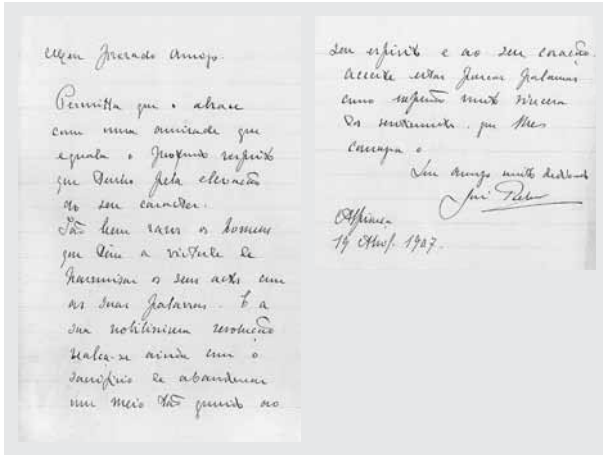 Meu prezado amigo.
Permitta que o abrace
com uma amizade que
eguala o profundo respeito
que tenho pela elevação
do seu caracter.
São bem raros os homens
que têm a virtude de
harmonisar os seus actos com
as suas palavras. E a
sua nobilissima resolução
realça-se ainda com o
sacrificio de abandonar
um meio tão querido ao
seu espirito e ao seu coração.
Acceite estas poucas palavras
como expressão muito sincera
dos sentimentos que lhes
consagra o
Seu amigo muito dedicado
José
19 1907.